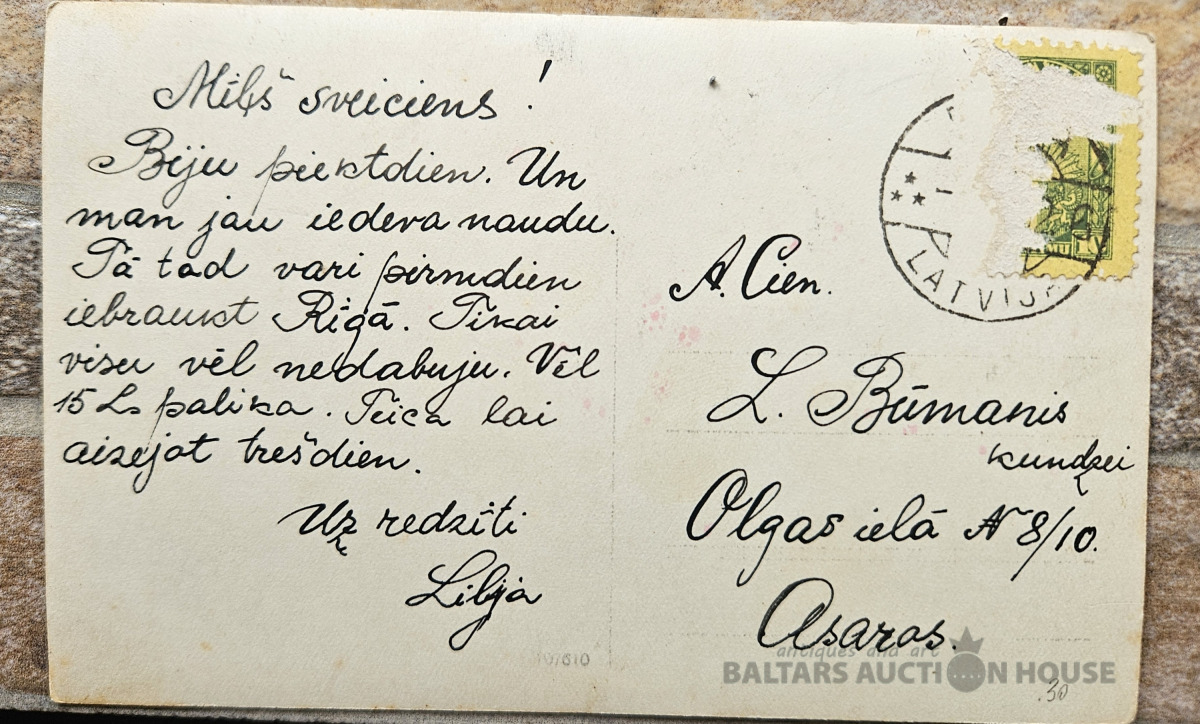 Miļš sveiciens!
Biju piektdien. Un
man jau iedeva naudu.
Tā tad vari pirmdien
iebraukt Rīgā. Tikai
visu vēl nedabuju. Vēl
15 Ls palika. Teica lai
aizejot trešdien.
Uz redzīti
Lilija
A. Cien.
L. Būmanis
kundzei
Olgas ielā № 8/10.
Asaros.
LATVIJA
antiques and art
BALTARS AUCTION HOUSE
30